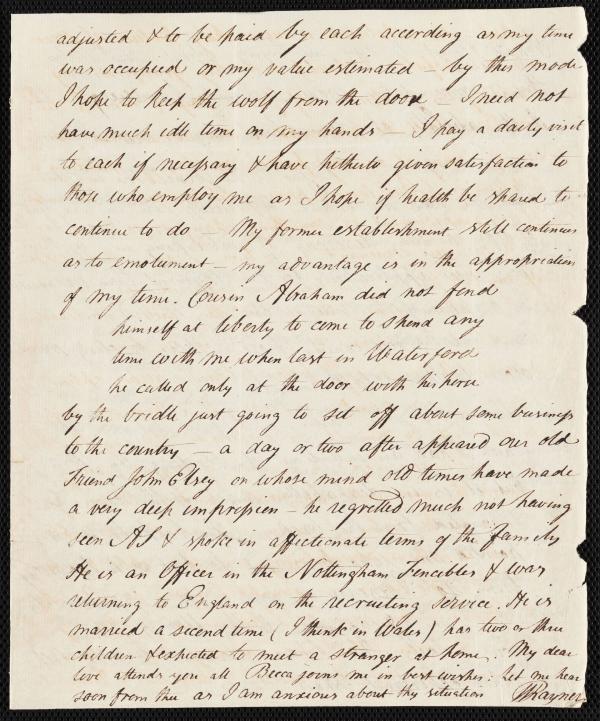 adjusted & to be paid by each according as my time
was occupied or my value estimated – by this mode
I hope to keep the wolf from the door – I need not
have much idle time on my hands – I pay a daily visit
to each if necessary & have hitherto given satisfaction to
those who employ me as I hope if health be spared to
continue to do – My former establishment still continues
as to emolument – my advantage is in the appropriation
of my time. Cousin Abraham did not find
himself at liberty to come to spend any
time with me when last in Waterford
he called only at the door with his horse
by the bridle just going to set off about some business
to the country – a day or two after appeared our old
Friend John Elsey on whose mind old times have made
a very deep impression – he regretted much not having
seen AS & spoke in affectionate terms of the family
He is an Officer in the Nottingham Fencibles & was
returning to England on the recruiting service. He is
married a second time (I think in Wales) has two or three
children & expected to meet a stranger at home. My dear
love attends you all Becca joins me in best wishes: let me hear
soon from thee as I am anxious about thy situation Rayner